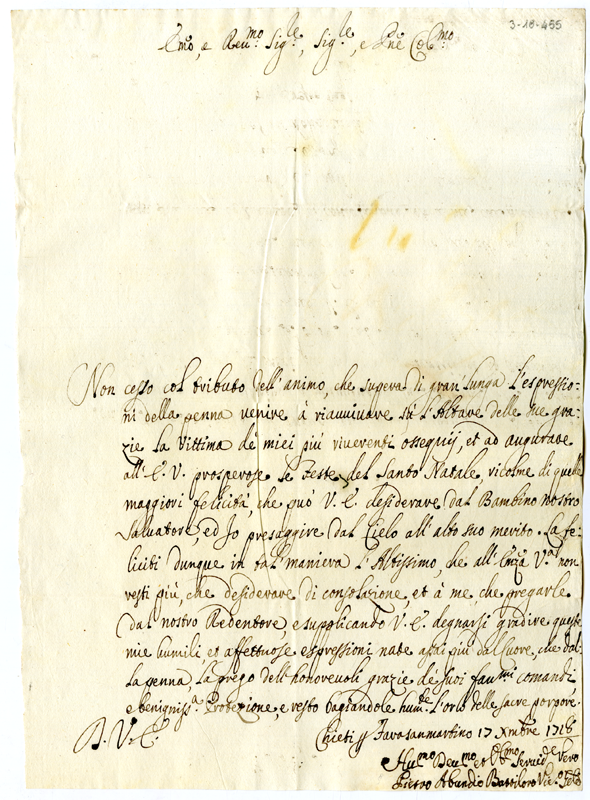 3-18-455
Emo, e Reumo Sigle, Sigle, e Pne Colmo
Non cesso col tributo dell'animo, che supera di gran' lunga l'espressio-
ni della penna venire à riauuivare sù l'Altare delle sue gra-
zie la Vittima de' miei più riverenti ossequij, et ad augurare
all'E. V. prosperose le Feste del Santo Natale, ricolme di quelle
maggiori felicità, che può V. E. desiderare dal Bambino nostro
Salvatore, ed Io presaggire dal Cielo all'alto suo merito. La fe-
liciti dunque in tal maniera l'Altissimo, che all'Emza Va non
resti più, che desiderare di consolazione, et à me, che pregarle
dal nostro Redentore, e supplicando V. E. degnarsi gradire queste
mie humili, et affettuose espressioni nate assai più dal Cuore, che dal-
la penna, La prego dell'honorevoli grazie de' suoi faustmi comandi,
e benignissa Protezione, e resto bagiandole humte l'orlo delle sacre porpore.
D. V. E. Chieti p Favasanmartino 17 Xmbre 1718
Humo Deumo et Obmo Seruide Vero
Pietro Abundio Battiloro Vic.o